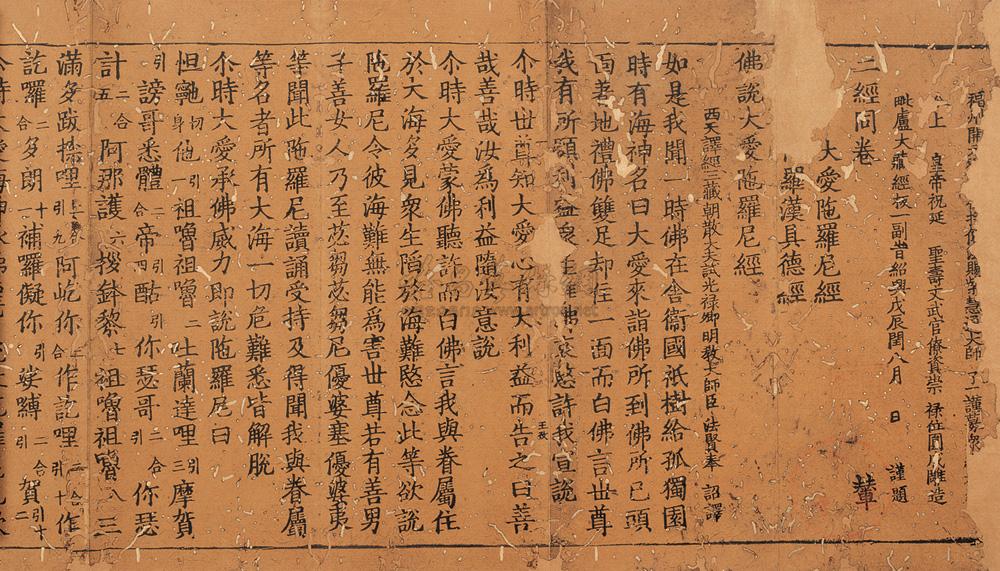 福州開元 都 大師 了一 謹募衆
上 皇帝祝延 聖壽文武官僚資崇 祿位圓成雕造
毗盧大藏經板一副 旹紹興戊辰閏八月 日 謹題
二經同卷 輦
大愛陁羅尼經
羅漢具德經
佛說大愛陁羅尼經
西天譯經三藏朝散大夫試光祿卿明教大師臣法賢奉 詔譯
如是我聞一時佛在舍衞國祇樹給孤獨園
時有海神名曰大愛來詣佛所到佛所已頭
面著地禮佛雙足却住一面而白佛言世尊
我有所願利益衆生唯佛哀愍許我宣說
尒時世尊知大愛心有大利益而告之曰善
哉善哉汝爲利益隨汝意說
尒時大愛蒙佛聽許而白佛言我與眷屬住
於大海多見衆生陷於海難愍念此等欲說
陁羅尼令彼海難無能爲害世尊若有善男
子善女人乃至苾芻苾芻尼優婆塞優婆夷
等聞此陁羅尼讀誦受持及得聞我與眷屬
等名者所有大海一切危難悉皆解脫
尒時大愛承佛威力即說陁羅尼曰
怛寧切身他一引祖嚕祖嚕二吐蘭達哩三引摩賀
引謗哥悉體二合帝四引酤引你瑟哥二合引你瑟
計五二合阿那護六拶鉢黎七祖嚕祖嚕八三
滿多跋捺哩二合引九阿屹你二合作訖哩二合
訖囉二合多朗十補囉儗你引娑縛二合引賀引十二